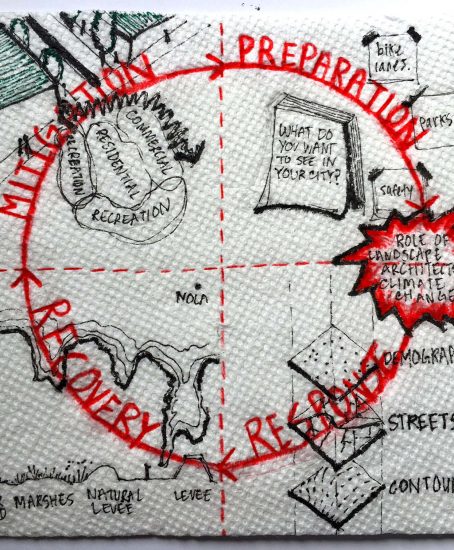 MITIGATION
PREPARATION
bike
lanes.
Parks
Safety
RECREATION
RESIDENTIAL
COMMERCIAL
RECREATION
WHAT DO
YOU WANT
TO SEE IN
YOUR CITY?
ROLE OF
LANDSCAPE
ARCHITECTS
CLIMATE
CHANGE
NOLA
RECOVERY
RESPONSE
DEMOGRAP
STREETS
CONTOU
MARSHES
NATURAL
LEVEE
LEVEE